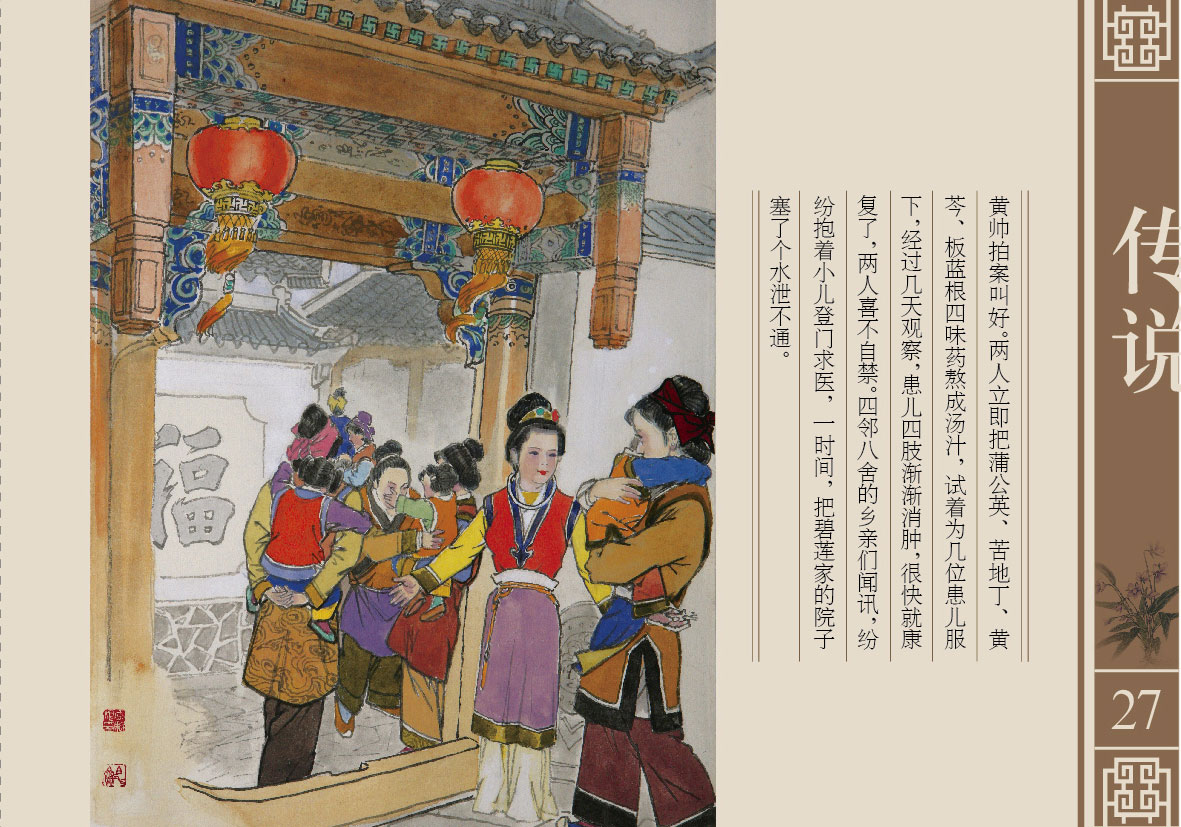 传说
黄帅拍案叫好。两人立即把蒲公英、苦地丁、黄
芩、板蓝根四味药熬成汤汁，试着为几位患儿服
下，经过几天观察，患儿四肢渐渐消肿，很快就康
复了，两人喜不自禁。四邻八舍的乡亲们闻讯，纷
纷抱着小儿登门求医，一时间，把碧莲家的院子
塞了个水泄不通。
福
27